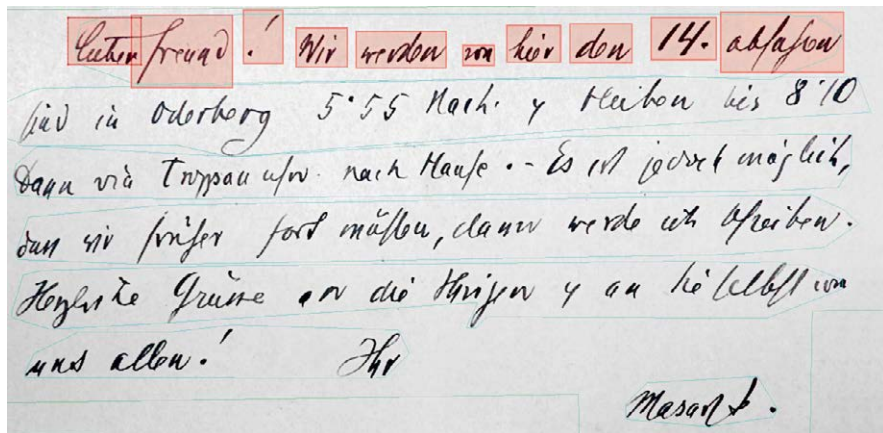 Lieber Freund! Wir werden von hier den 14. abfahren
sind in Oderberg 5·55 Nach. y bleiben bis 8·10
Dann via Troppau usw. nach Hause. - Es ist jedoch möglich,
dass wir früher fort müssen, dann werde ich schreiben.
Herzliche Grüsse an die Ihrigen y an Sie selbst von
uns allen! Ihr